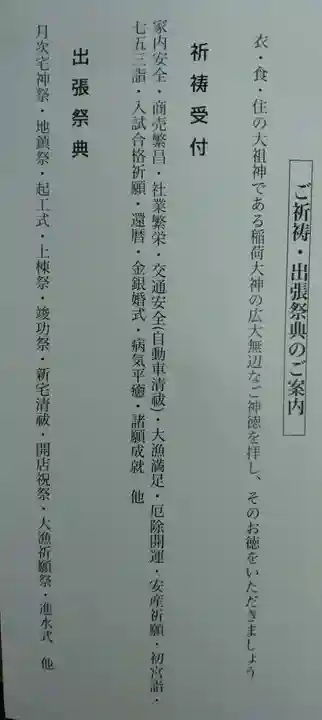 ご祈祷・出張祭典のご案内
衣・食・住の大祖神である稲荷大神の広大無辺なご神徳を拝し、そのお徳をいただきましょう
祈祷受付
家内安全・商売繁昌・社業繁栄・交通安全(自動車清祓)・大漁満足・厄除開運・安産祈願・初宮詣・
七五三詣・入試合格祈願・還暦・金銀婚式・病気平癒・諸願成就　他
出張祭典
月次宅神祭・地鎮祭・起工式・上棟祭・竣功祭・新宅清祓・開店祝祭・大漁祈願祭・進水式　他